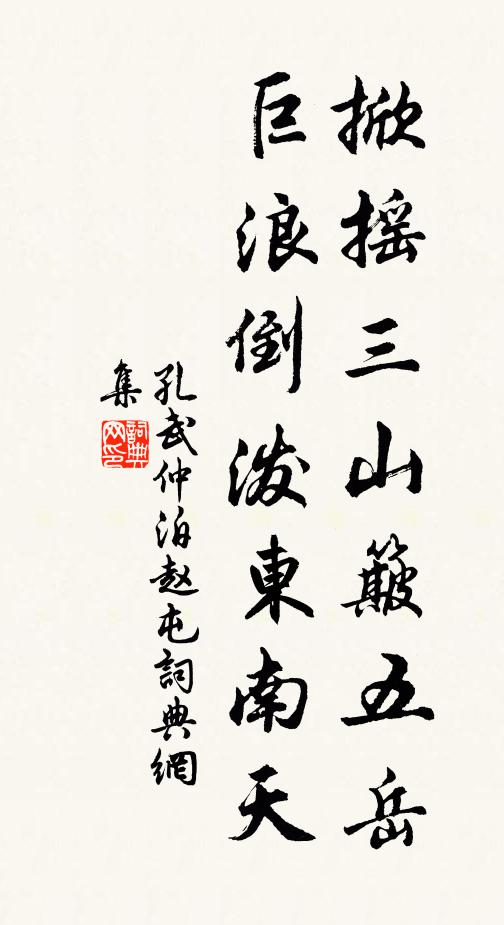 掀摇三山簸五岳
巨浪倒泼東南天
孔武仲泊赵屯詞典網
集
詞典
网印